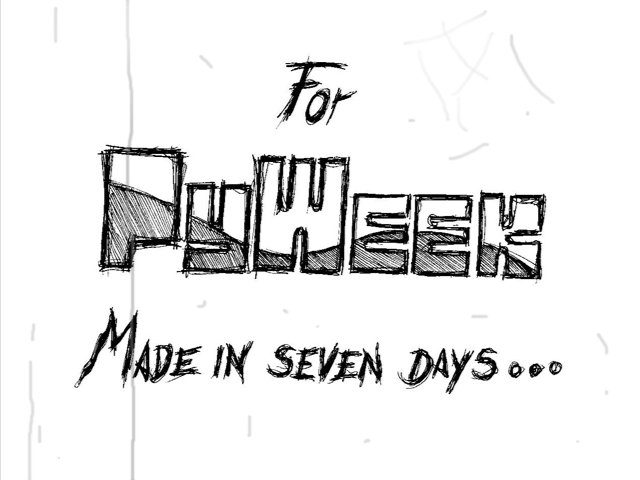 For
PyWeek
Made in seven days...